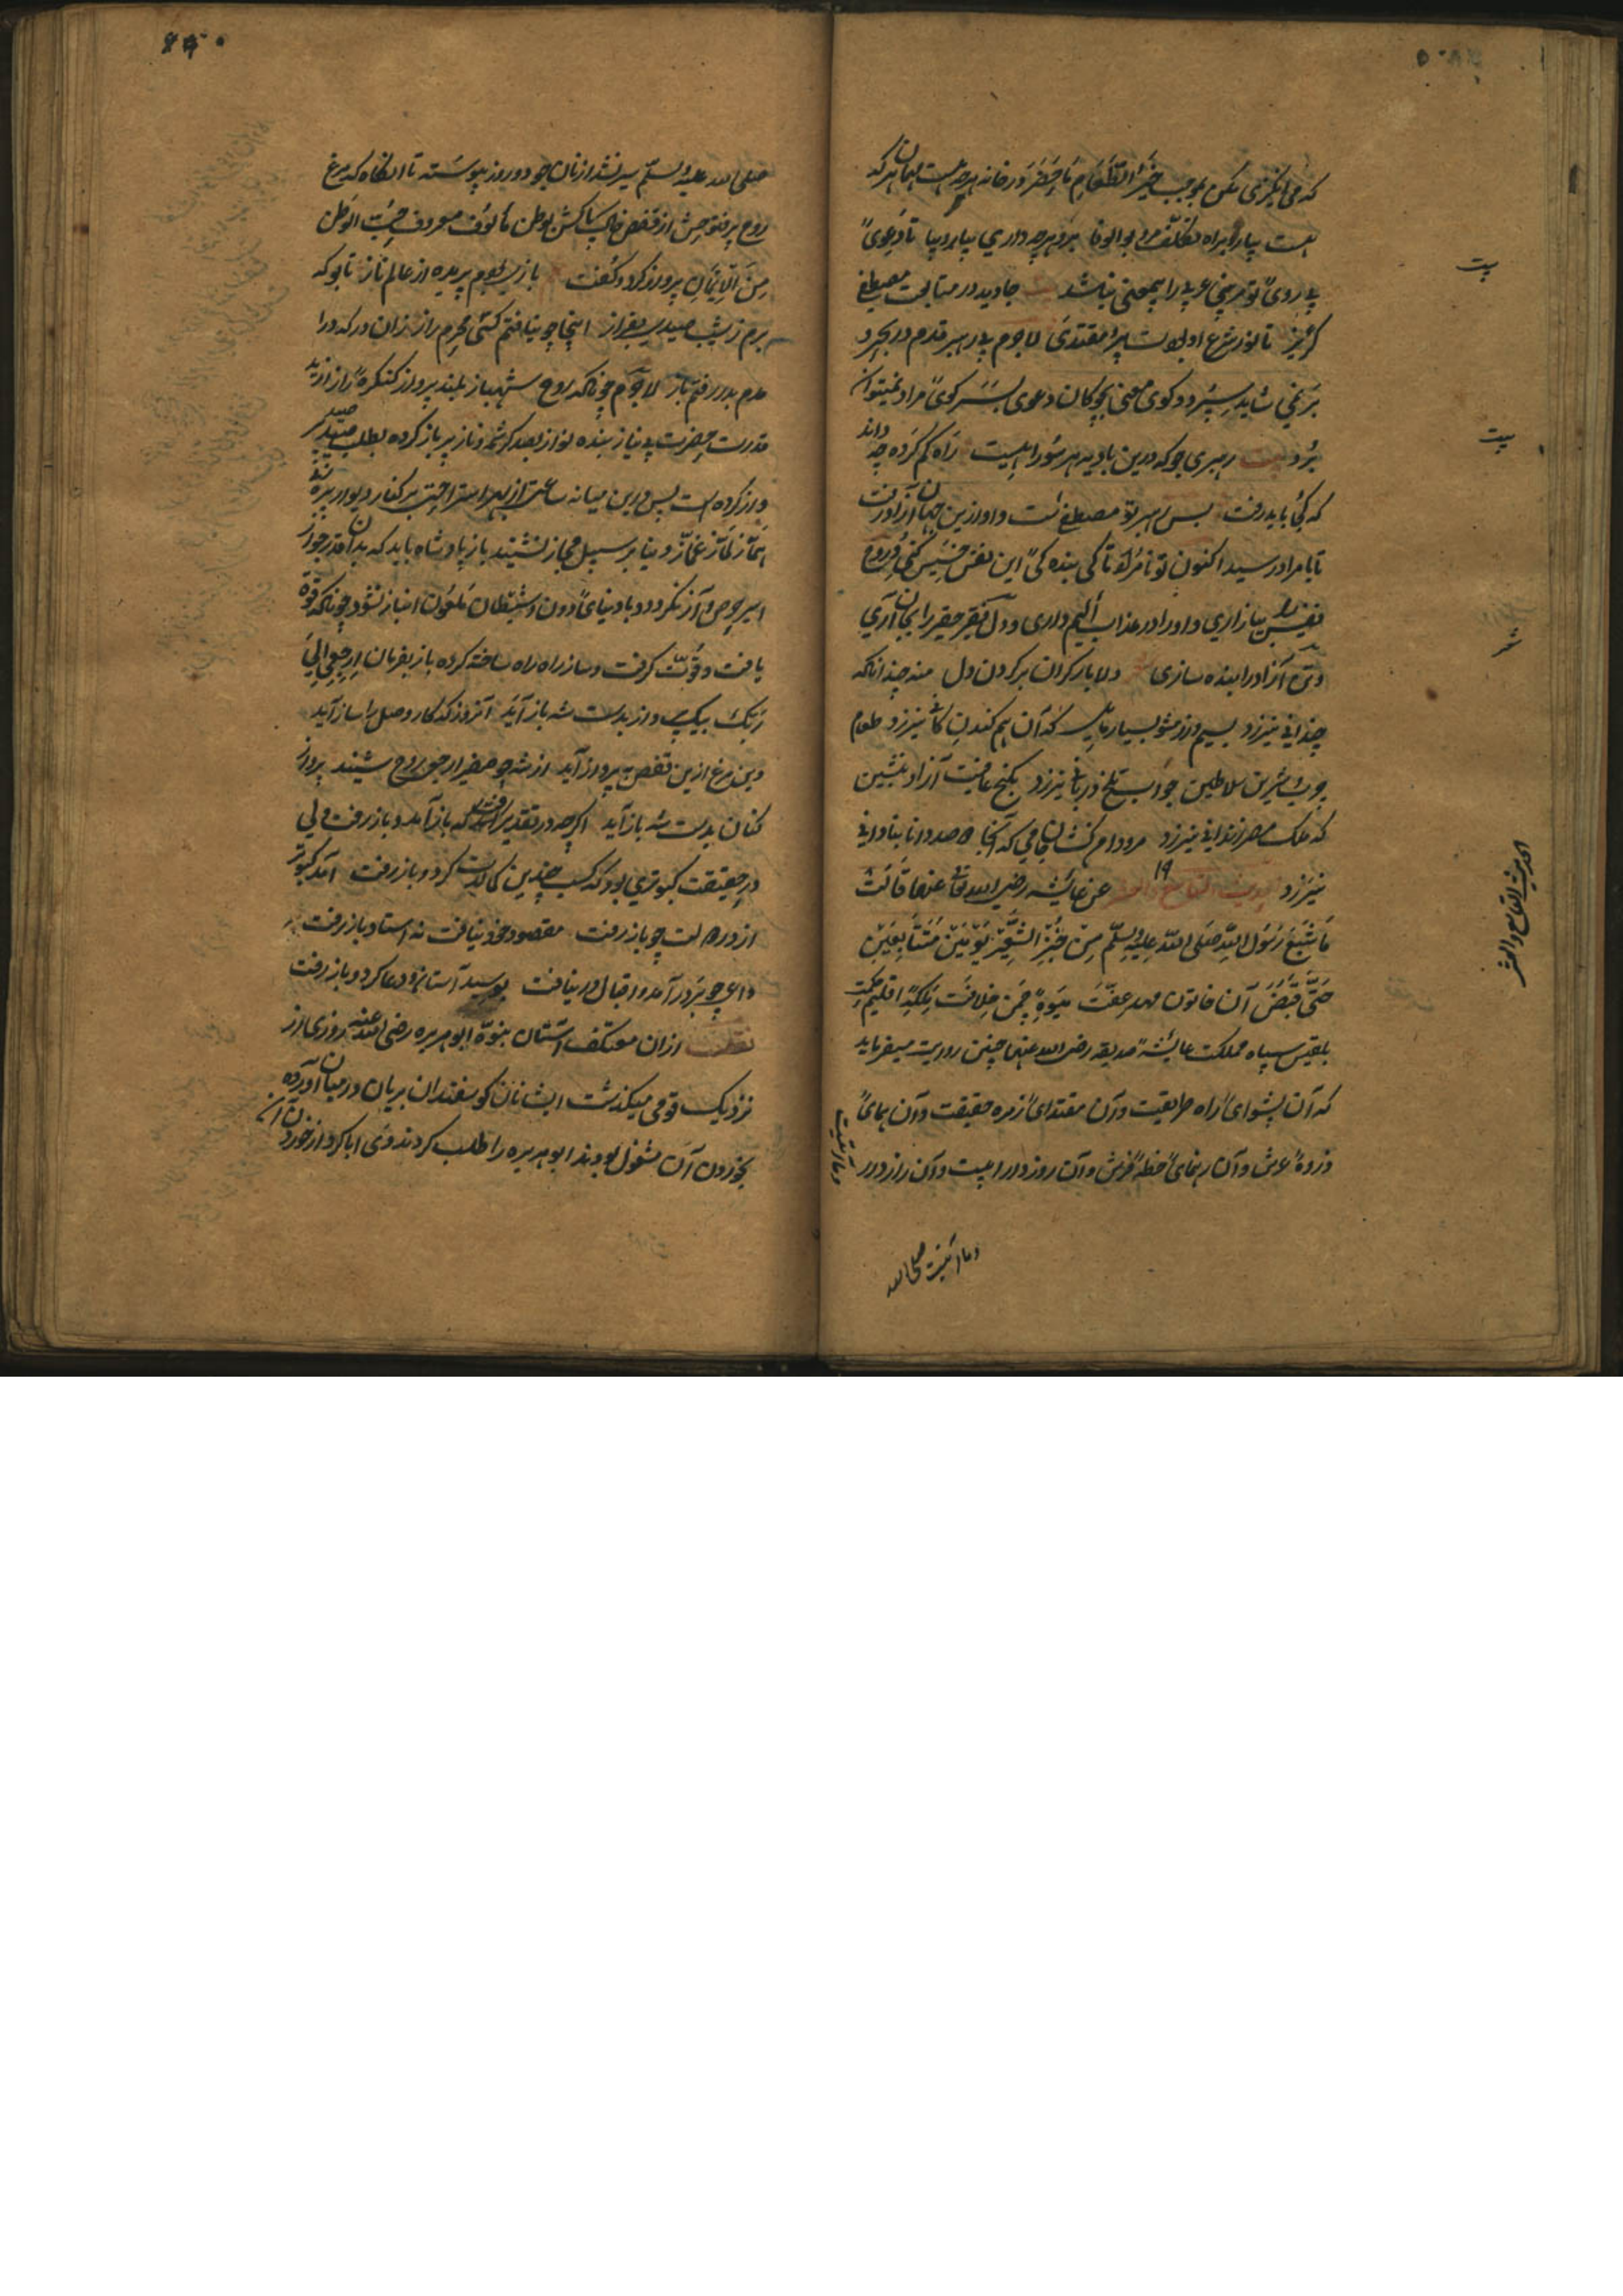 که می‌انگیزی مکن بموجب خَیرُ الطَّعَامِ مَا حَضَرَ در خانه هر چه هست مهمان هر که
هست بیار و براه تکلّف مرو بو الوفا برو هر چه داری بیار و بپا تا دعویٔ
پی رویٔ تو مر نبی عربی را بیمعنی نباشد بیت جاوید در متابعت مصطفی
گریز تا نور شرع او بدلت پیر و مقتدی لاجرم بی رهبر قدم در بحر و
بر نمی شاید سپرد و کوی معنی بچوکان دعوی بسر کویٔ مراد نمیتوان
برد بیت رهبری جو که درین بادیه هر سو راهیست راه کم کرده چه داند
که کجا باید رفت بس رهبر تو مصطفی است و او ازین جهان آزاد رفت
تا بامراد رسید اکنون تو نامراد تا کی بنده کیٔ این نفس خسیس کنی و روح
نفیس را بیازاری و او را در عذاب الیم داری و دل فقیر حقیر را بجان آری
و تن آزاد را بنده سازی دلا بار کران بر کردن دل منه چندانکه
چندانی نیرزد بسیم و زر مشو بسیار مایل که آن هم کندن کانی نیرزد طعام
چرب و شیرین سلاطین جواب تلخ دربانی نیرزد بکنج عافیت آزاد بنشین
که ملک مصر زندانی نیرزد مرو دام کشان جامی که آنجا دو صد دانا بنادانی
نیرزد الحدیث التاسع والعشر ۱۹ عن عایشه رضی الله تعالی عنها قالت
مَا شَبِعَ رَسُولُ اللّٰهِ صَلَّی اللّٰهُ عَلَیهِ وَسَلَّمَ مِن خُبزِ الشَّعِیرِ یَومَینِ مُتَتَابِعَینِ
حَتَّی قُبِضَ آن خاتون مهد عفّت میوهٔ چمن خلافت ملکهٔ اقلیم حکمت
بلقیس سپاه مملکت عایشهٔ صدیقه رضی الله عنها چنین روایت میفرماید
که آن پیشوایٔ راه طریقت و آن مقتدایٔ زمره حقیقت و آن همایٔ
ذروهٔ عرش و آن رهنمایٔ خطهٔ فرش و آن روز در رامیت و آن راز در
بیت
بیت
شعر
الحدیث التاسع والعشر
وما رمیت
وما رمیت صلی الله
صلی الله علیه وسلم سیر نشد از نان جو دو روز پیوسته تا انکاه که مرغ
روح پر فتوحش از قفص خاک پاکش بوطن مألوف معروف حُبُّ الوَطَن
مِنَ الاِیمَانِ پرواز کرد و گفت بازی بودم پریده از عالم ناز تا بو که
برم ز شیب صیدی بفراز اینجا چو نیافتم کسی محرم راز زان در که درا
مدم بدر رفتم باز لاجرم چونانکه روح شهباز بلند پرواز کنکرهٔ راز از ید
قدرت حضرت بی نیاز بنده نواز بصد کرشمه و ناز پر باز کرده بطلب صید سر
دراز کرده است پس درین میانه ساعتی از بهر استراحتی بر کنار دیوار پر
نماز غماز دنیا بر سبیل مجاز نشیند باز پادشاه باید که بدان قدر خوار
اسیر حرص و آز نکردد و با دنیایٔ دون و شیطان ملعون انباز نشود چونانکه قوة
یافت و قُوَّت گرفت و ساز راه راه ساخته کرده باز بفرمان اِرجِعِی اِلیٰ
رَبِّک بیک پرواز بدست شه باز آید آنروز که کار وصل را ساز آید
وین مرغ ازین قفص به پرواز آید از شه چو صفیر ارجعی روح شنید پرواز
کنان بدست شه باز آید اگر چه در تقدیر رفته که باز آمد و باز رفت ولی
در حقیقت کبوتری بود که کسب چندین کمالات کرد و باز رفت آمد کبوتر
از در دولت چو باز رفت مقصود خود نیافت نه استاد باز رفت
داعی چو بر در آمد و اقبال در نیافت بوسید آستانه و دعا کرد و باز رفت
نقلست از آن معتکف آستان نبوّة ابو هریره رضی الله عنه روزی از
نزدیک قومی میکذشت ایشانان کوسفندان بریان در میان آورده
بخوردن آن مشغول بودند ابو هریره را طلب کردند وی ابا کرد از خوردن آن